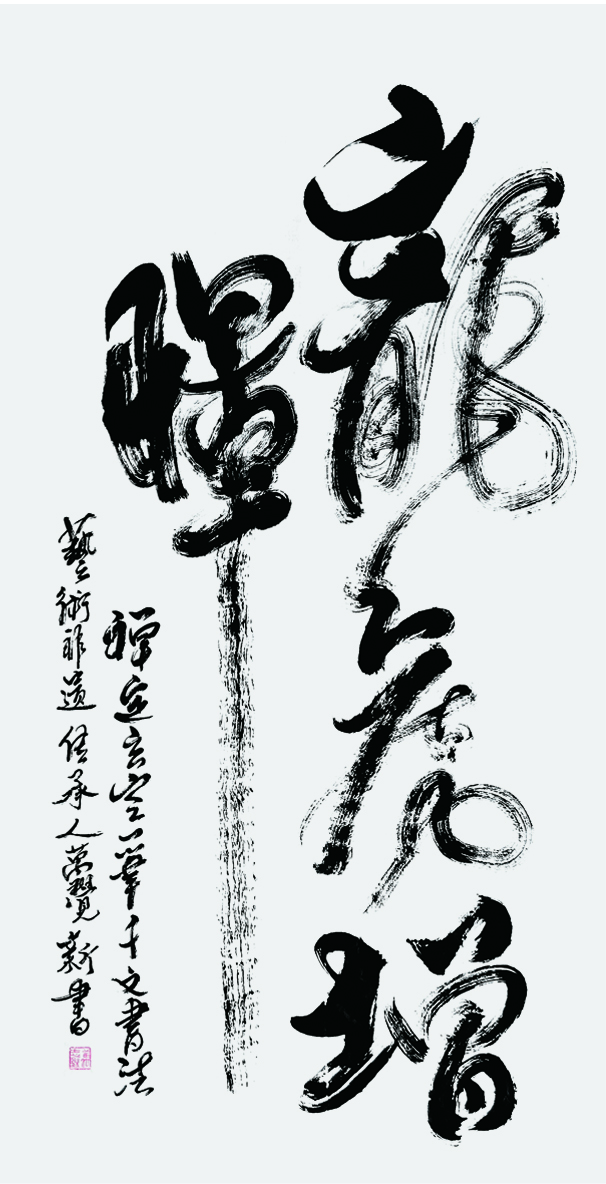 龍虎增
暉
禪定玄空一筆千文書法
藝術非遺傳承人覺新書